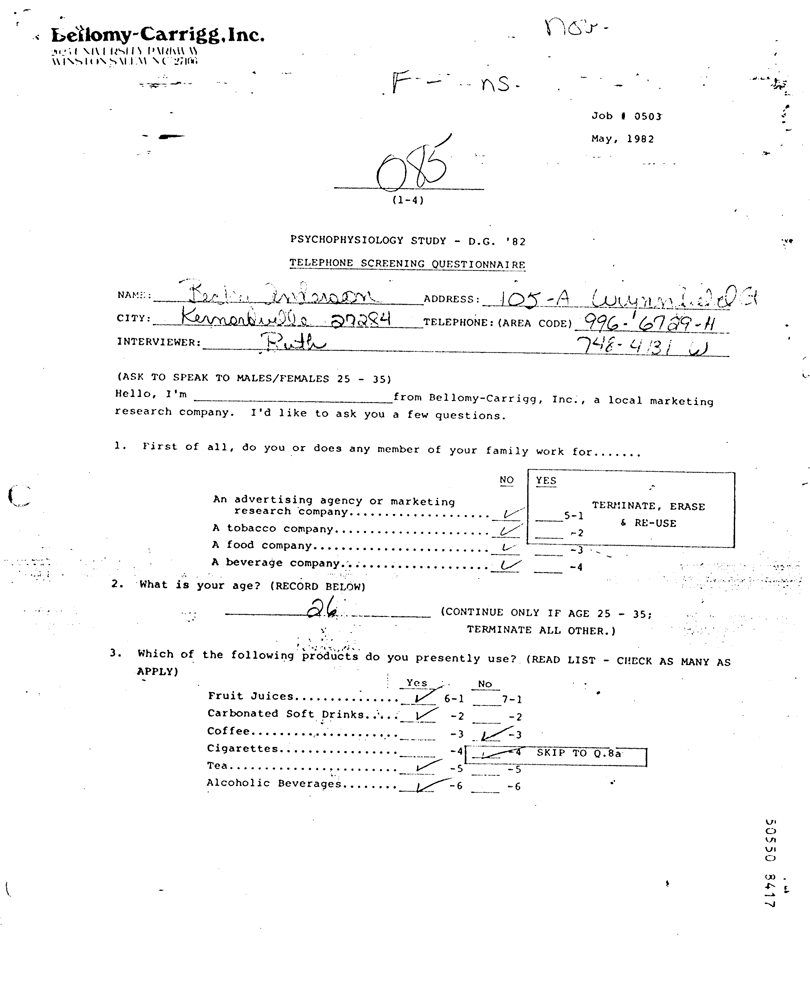 Bellomy-Carrigg, Inc.
2025 UNIVERSITY PARKWAY
WINSTON SALEM NC 27106
Non-
ns.
Job # 0503
May, 1982
085
(1-4)
PSYCHOPHYSIOLOGY STUDY - D.G. '82
TELEPHONE SCREENING QUESTIONNAIRE
NAME: Anderson ADDRESS: 105-A
CITY: Kernersville 27284 TELEPHONE: (AREA CODE) 996-6729-H
INTERVIEWER: Ruth 748-4131 W
(ASK TO SPEAK TO MALES/FEMALES 25 - 35)
Hello, I'm ____ from Bellomy-Carrigg, Inc., a local marketing
research company. I'd like to ask you a few questions.
1. First of all, do you or does any member of your family work for.......
NO YES
An advertising agency or marketing TERMINATE, ERASE
research company.................... ✓ ____5-1 & RE-USE
A tobacco company....................... ✓ ____-2
A food company.......................... ✓ ____-3
A beverage company...................... ✓ ____-4
2. What is your age? (RECORD BELOW)
26 (CONTINUE ONLY IF AGE 25 - 35;
TERMINATE ALL OTHER.)
3. Which of the following products do you presently use? (READ LIST - CHECK AS MANY AS
APPLY)
Yes No
Fruit Juices............... ✓ 6-1 ____7-1
Carbonated Soft Drinks..... ✓ -2 ____-2
Coffee..................... ____ -3 ✓-3
Cigarettes................. ____ -4 ✓-4 SKIP TO Q.8a
Tea........................ ✓ -5 ____-5
Alcoholic Beverages........ ✓ -6 ____-6
50550 8417